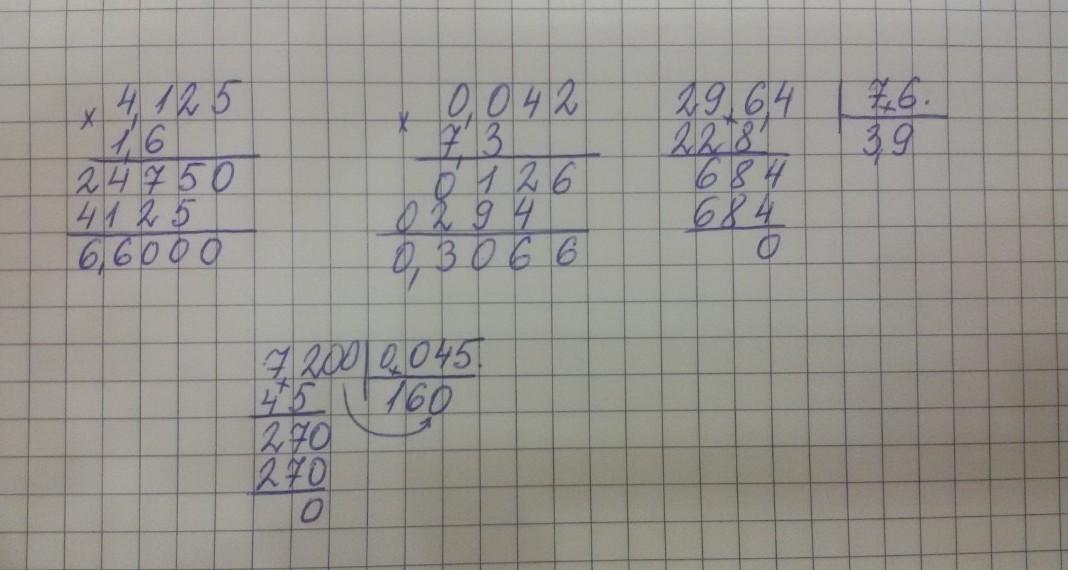 × 4,125
1,6
24750
4125
6,6000
× 0,042
7,3
0126
0294
0,3066
29,6,4 | 7,6.
228 3,9
684
684
0
7,200 | 0,045.
45 160
270
270
0